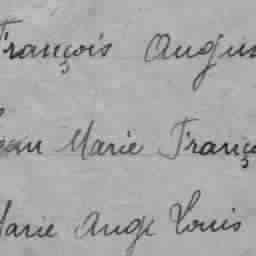 François Augus
Jean Marie Franç
Marie Ange Louis